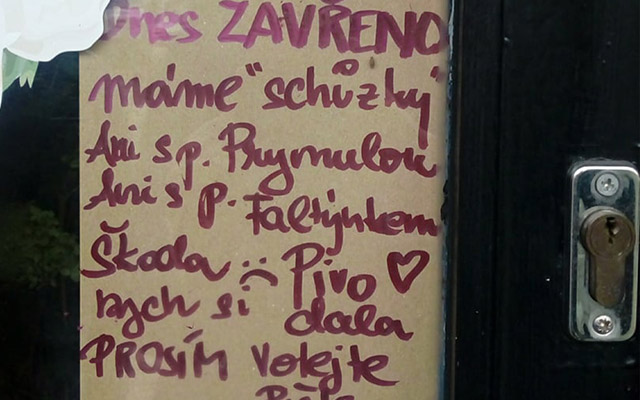 Dnes ZAVŘENO
máme "schůzky"
Ani s p. Prymulou
Ani s p. Faltýnkem
Škoda :( Pivo ♡
bych si dala
PROSÍM volejte